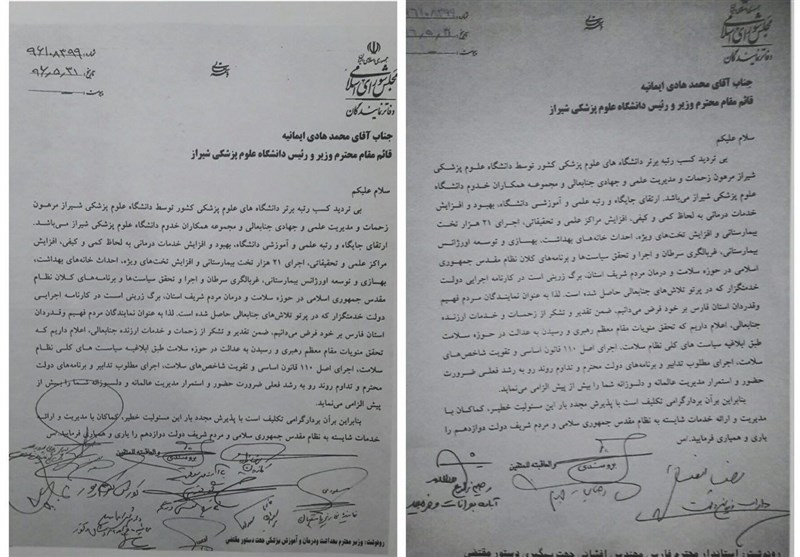 جمهوری اسلامی ایران
مجلس شورای اسلامی
دفاتر نمایندگان
۹۶/۰۸۳۹۹
تاریخ: ۹۶/۵/۳۱
پیوست:
جناب آقای محمد هادی ایمانیه
قائم مقام محترم وزیر و رئیس دانشگاه علوم پزشکی شیراز
سلام علیکم
بی تردید کسب رتبه برتر دانشگاه های علوم پزشکی کشور توسط دانشگاه علوم پزشکی شیراز مرهون
زحمات و مدیریت علمی و جهادی جنابعالی و مجموعه همکاران خدوم دانشگاه علوم پزشکی شیراز می‌باشد.
ارتقای جایگاه و رتبه علمی و آموزشی دانشگاه، بهبود و افزایش خدمات درمانی به لحاظ کمی و کیفی، افزایش
مراکز علمی و تحقیقاتی، اجرای ۲۱ هزار تخت بیمارستانی و افزایش تخت‌های ویژه، احداث خانه‌های بهداشت،
بهسازی و توسعه اورژانس بیمارستانی، غربالگری سرطان و اجرا و تحقق سیاست‌ها و برنامه‌های کلان نظام
مقدس جمهوری اسلامی در حوزه سلامت و درمان مردم شریف استان، برگ زرینی است در کارنامه اجرایی
دولت خدمتگزار که در پرتو تلاش‌های جنابعالی حاصل شده است. لذا به عنوان نمایندگان مردم فهیم وقدردان
استان فارس بر خود فرض می‌دانیم، ضمن تقدیر و تشکر از زحمات و خدمات ارزنده جنابعالی، اعلام داریم که
تحقق منویات مقام معظم رهبری و رسیدن به عدالت در حوزه سلامت طبق ابلاغیه سیاست های کلی نظام
سلامت، اجرای اصل ۱۱۰ قانون اساسی و تقویت شاخص‌های سلامت، اجرای مطلوب تدابیر و برنامه‌های دولت
محترم و تداوم روند رو به رشد فعلی ضرورت حضور و استمرار مدیریت عالمانه و دلسوزانه شما را بیش از
پیش الزامی می‌نماید.
بنابراین برآن بردارگرامی تکلیف است با پذیرش مجدد بار این مسئولیت خطیر، کماکان با مدیریت و ارائه
خدمات شایسته به نظام مقدس جمهوری سلامی و مردم شریف دولت دوازدهم را یاری و همیاری فرمایید.س
والعاقبة للمتقین
رونوشت: وزیر محترم بهداشت ودرمان و آموزش پزشکی جهت دستور مقتضی
مجلس شورای اسلامی
دفاتر نمایندگان
جناب آقای محمد هادی ایمانیه
قائم مقام محترم وزیر و رئیس دانشگاه علوم پزشکی شیراز
سلام علیکم
بی تردید کسب رتبه برتر دانشگاه های علوم پزشکی کشور توسط دانشگاه علوم پزشکی
شیراز مرهون زحمات و مدیریت علمی و جهادی جنابعالی و مجموعه همکاران خدوم دانشگاه
علوم پزشکی شیراز می‌باشد. ارتقای جایگاه و رتبه علمی و آموزشی دانشگاه، بهبود و افزایش
خدمات درمانی به لحاظ کمی و کیفی، افزایش مراکز علمی و تحقیقاتی، اجرای ۲۱ هزار تخت
بیمارستانی و افزایش تخت‌های ویژه، احداث خانه‌های بهداشت، بهسازی و توسعه اورژانس
بیمارستانی، غربالگری سرطان و اجرا و تحقق سیاست‌ها و برنامه‌های کلان نظام مقدس جمهوری
اسلامی در حوزه سلامت و درمان مردم شریف استان، برگ زرینی است در کارنامه اجرایی دولت
خدمتگزار که در پرتو تلاش‌های جنابعالی حاصل شده است. لذا به عنوان نمایندگان مردم فهیم
وقدردان استان فارس بر خود فرض می‌دانیم، ضمن تقدیر و تشکر از زحمات و خدمات ارزنده
جنابعالی، اعلام داریم که تحقق منویات مقام معظم رهبری و رسیدن به عدالت در حوزه سلامت
طبق ابلاغیه سیاست های کلی نظام سلامت، اجرای اصل ۱۱۰ قانون اساسی و تقویت شاخص‌های
سلامت، اجرای مطلوب تدابیر و برنامه‌های دولت محترم و تداوم روند رو به رشد فعلی ضرورت
حضور و استمرار مدیریت عالمانه و دلسوزانه شما را بیش از پیش الزامی می‌نماید.
بنابراین برآن بردارگرامی تکلیف است با پذیرش مجدد بار این مسئولیت خطیر، کماکان با
مدیریت و ارائه خدمات شایسته به نظام مقدس جمهوری سلامی و مردم شریف دولت دوازدهم را
یاری و همیاری فرمایید.س
والعاقبة للمتقین
رونوشت: استاندار محترم فارس مهندس افشانی جهت پیگیری دستور مقتضی